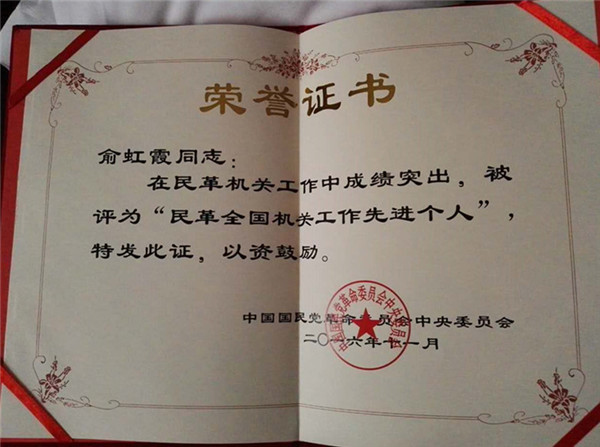 荣誉证书
俞虹霞同志：
在民革机关工作中成绩突出，被
评为“民革全国机关工作先进个人”，
特发此证，以资鼓励。
中国国民党革命委员会中央委员会
二〇一六年十一月
中国国民党革命委员会中央委员会